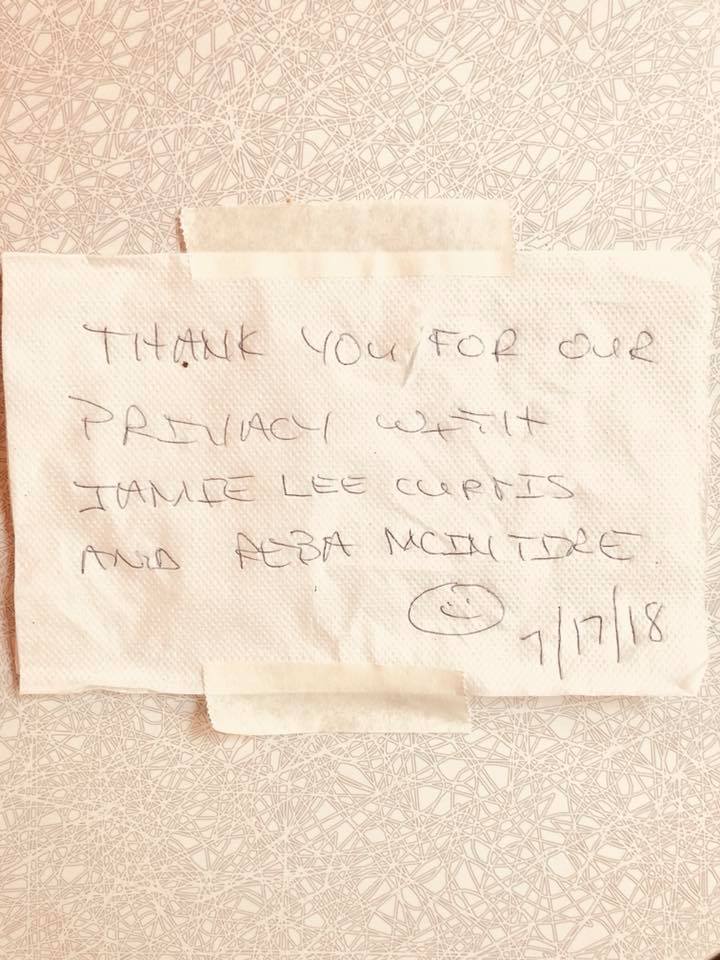 THANK YOU FOR OUR
PRIVACY WITH
JAMIE LEE CURTIS
AND REBA MCINTIRE
7/17/18